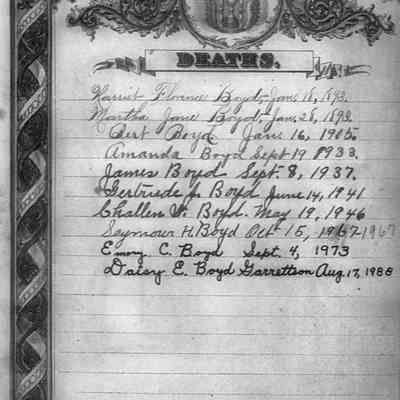 DEATHS.
Harriet Florence Boyd, Jan. 18, 1892.
Martha Jane Boyd, Jan. 28, 1892
Bert Boyd Jan. 16, 1905.
Amanda Boyd Sept 19 1933.
James Boyd Sept. 8, 1937.
Gertrude J. Boyd June 14, 1941
Challen Boyd. May 19, 1946
Seymour H. Boyd Oct 15, 1967 1967
Emory C. Boyd Sept. 4, 1973
Daisy E. Boyd Garrettson Aug. 17, 1988